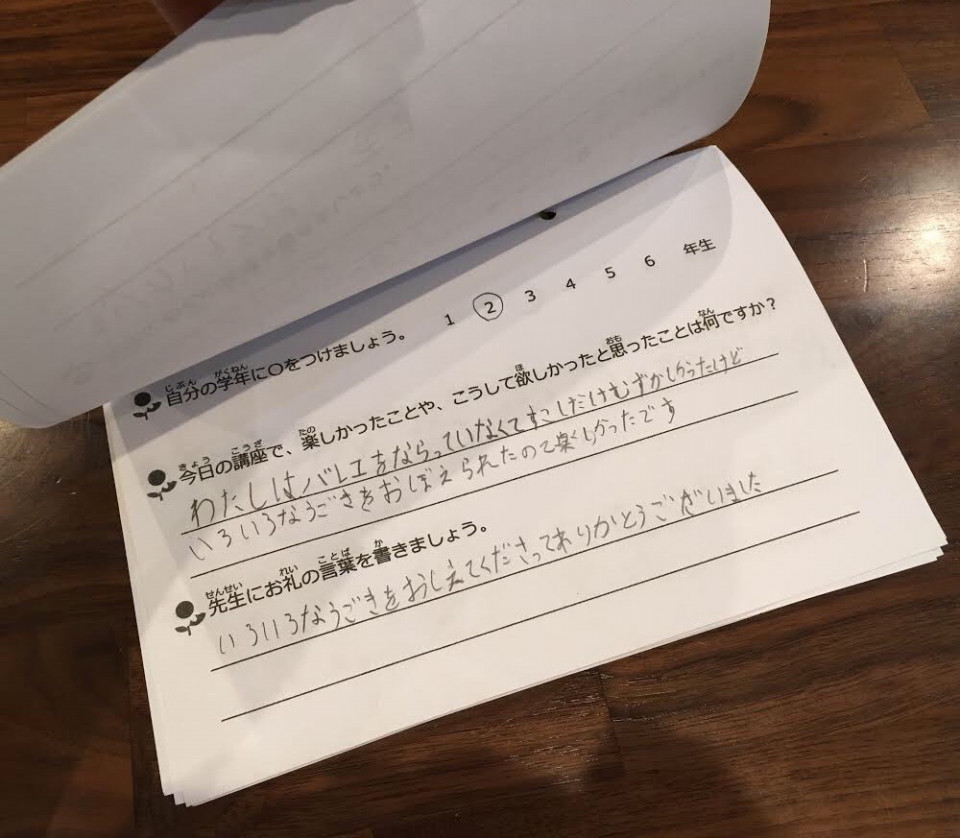 自分の学年に○をつけましょう。 1 2 3 4 5 6 年生
今日の講座で、楽しかったことや、こうして欲しかったと思ったことは何ですか？
わたしはバレエをならっていなくてすこしだけむずかしかったけど
いろいろなうごきをおぼえられたので楽しかったです
先生にお礼の言葉を書きましょう。
いろいろなうごきをおしえてくださってありがとうございました